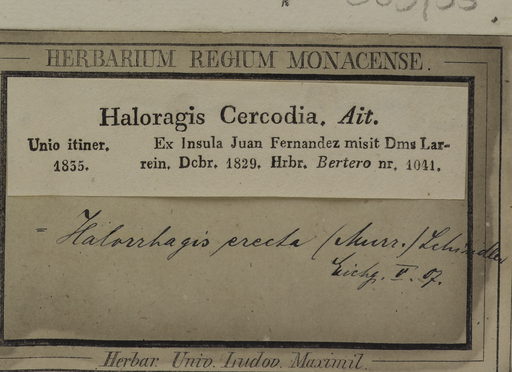 HERBARIUM REGIUM MONACENSE.
Haloragis Cercodia. Ait.
Unio itiner. 1835.
Ex Insula Juan Fernandez misit Dms Lar-
rein. Dcbr. 1829. Hrbr. Bertero nr. 1041.
= Halorrhagis erecta (Murr.) Schindler
Eichg. V. 07.
Herbar. Univ. Ludov. Maximil.